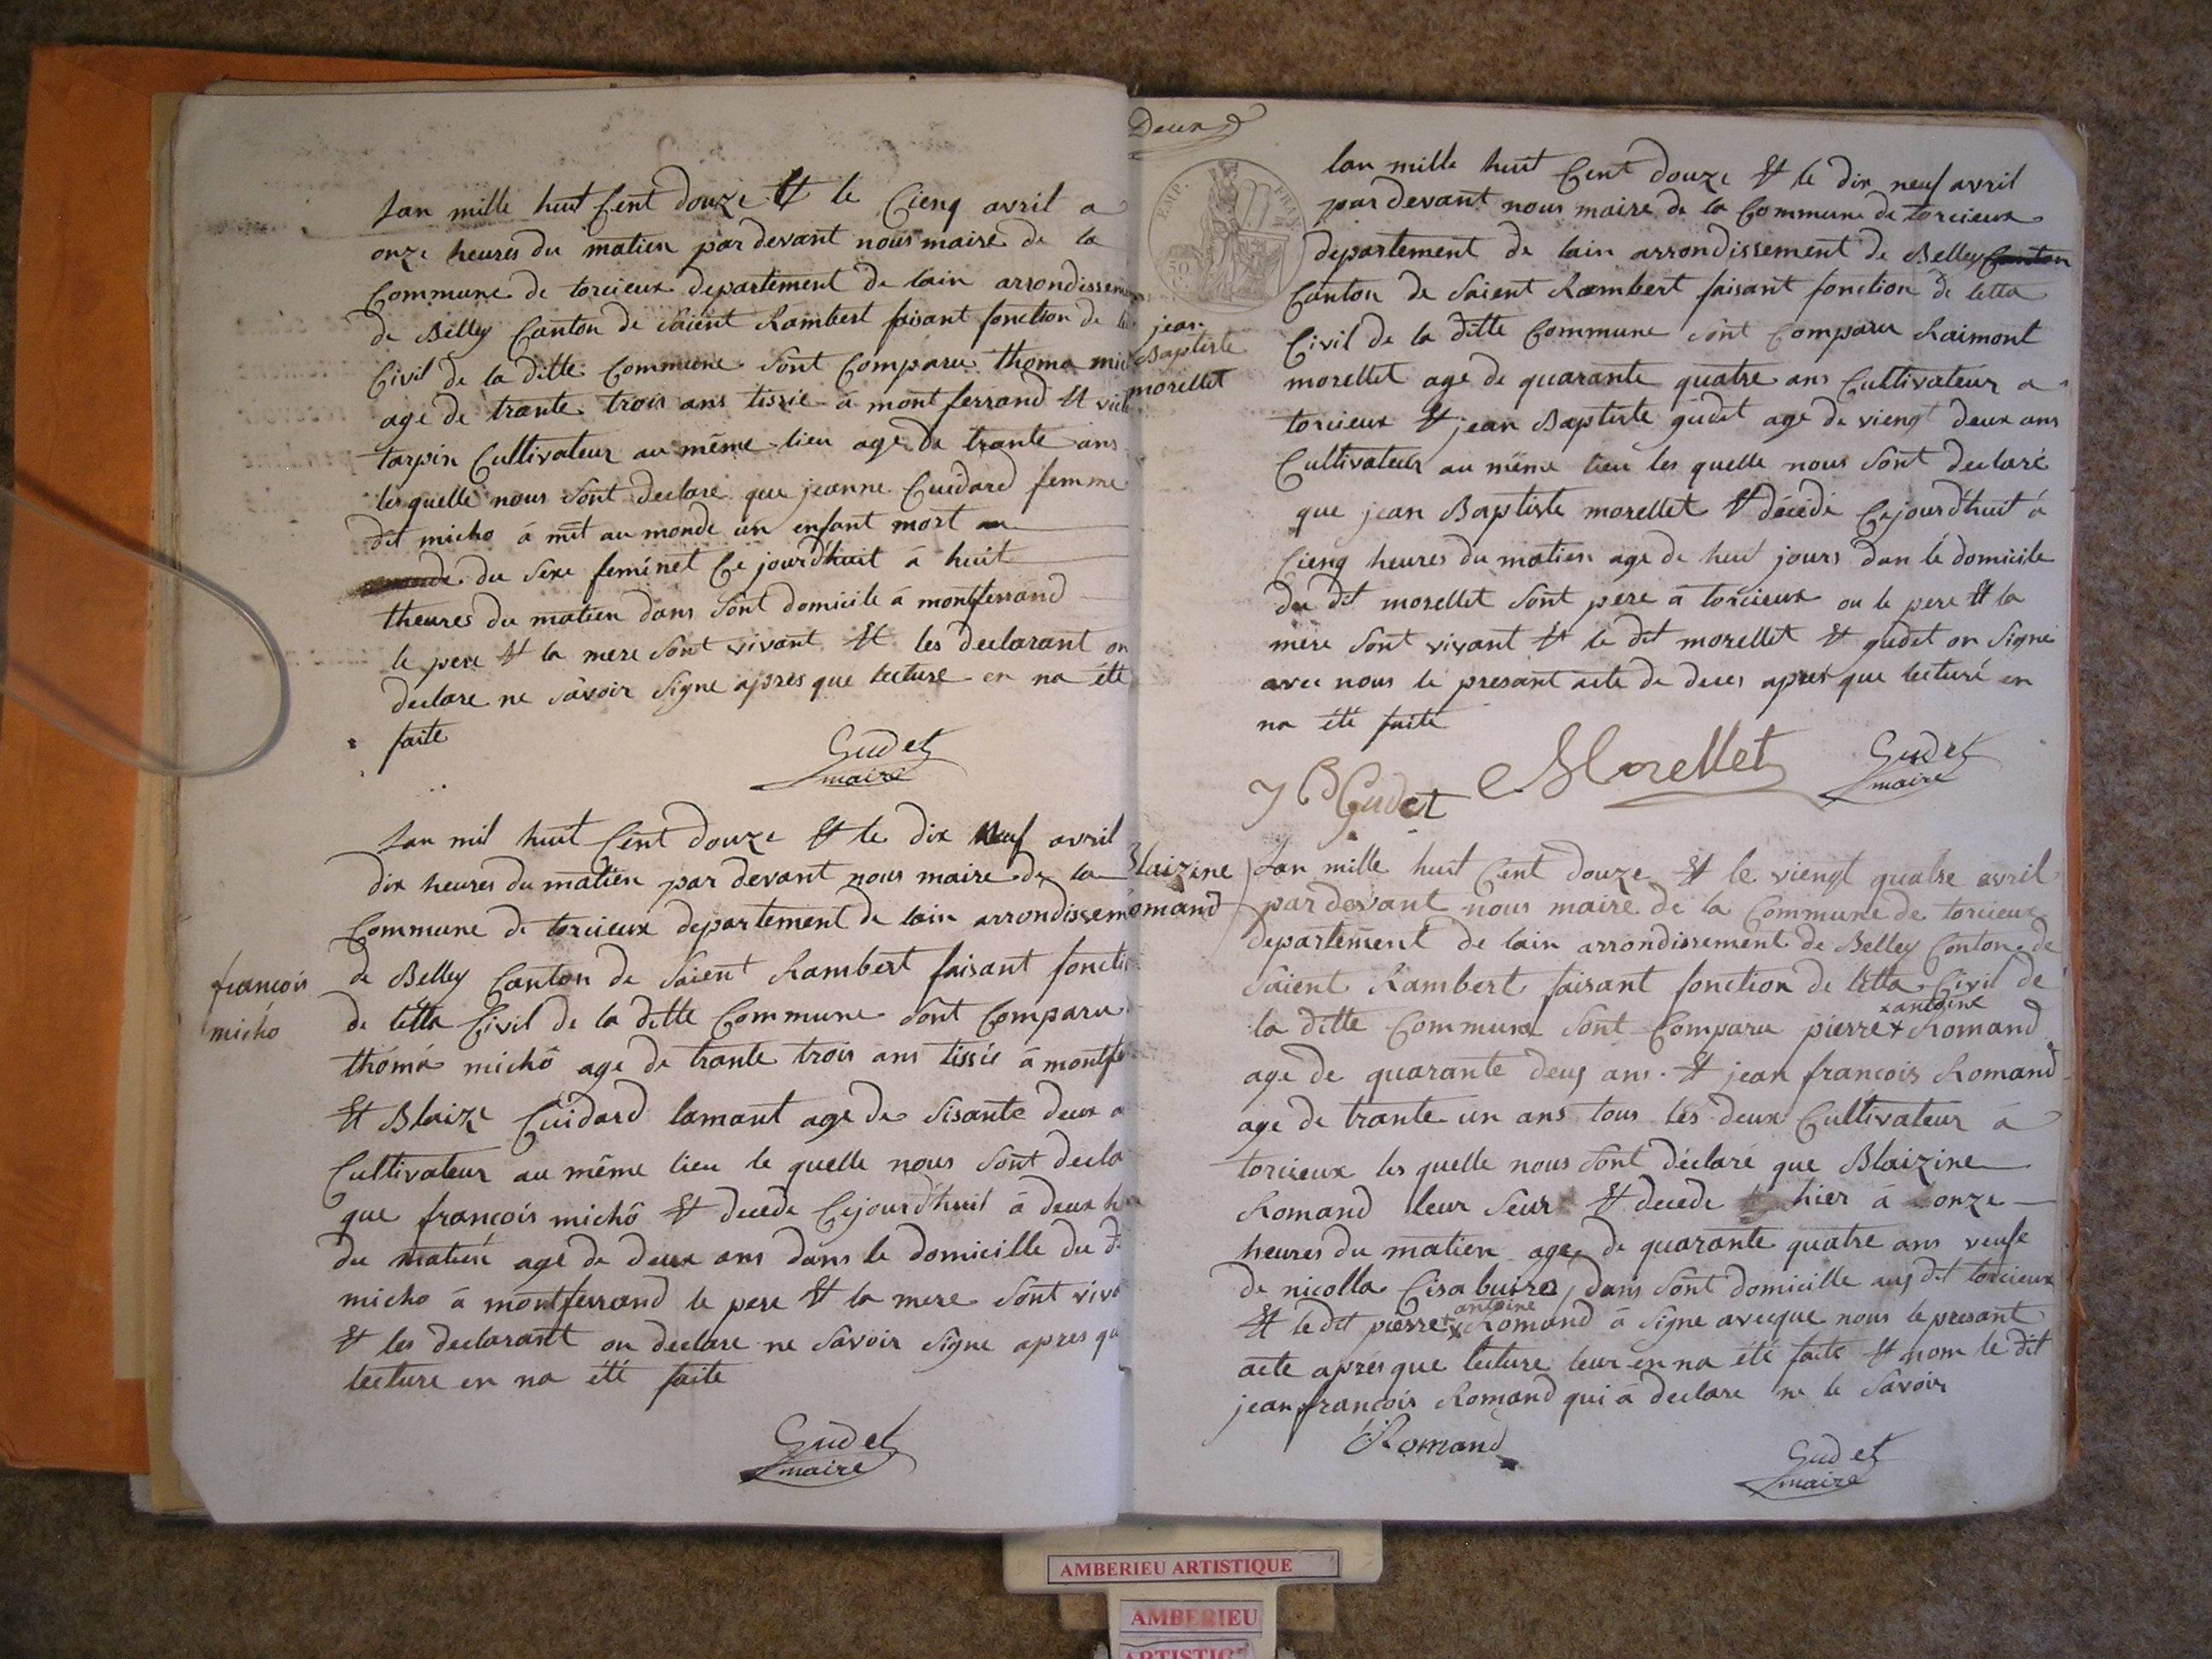 Lan mille huit Cent douze Et le Cienq avril a
onze heures du matien par devant nous maire de la
Commune de torcieux departement de lain arrondissem
de Belley Canton de saient Rambert faisant fonction de
Civil de la ditte Commune sont Comparu thoma mic
age de trante trois ans tissie a mont ferrand Et
tarpin Cultivateur au même lieu age de trante ans
lesquelle nous sont declaré que jeanne Cuedard femme
dit micho à mit au monde un enfant mort
du sexe feminet Ce jourdhuit à huit
theures du matien dans sont domicile à montferrand
le pere Et la mere sont vivant Et les declarant on
declare ne sàvoir signe apres que lecture en na été
faite
Gudet
maire
françois
micho
Lan mil huit Cent douze Et le dix neuf avril
dix heures du matien par devant nous maire de la
Commune de torcieux departement de lain arrondissem
de Belley Canton de saient Rambert faisant foncti
de letta Civil de la ditte Commune sont Comparu
thoma michô age de trante trois ans tissié à montfe
Et Blaize Cuidard lamant age de sisante deux a
Cultivateur au même lieu le quelle nous sont decla
que françois michô Et decede Cejourdhuit à deux h
du matien age de deux ans dans le domicille du d
micho à montferrand le pere Et la mere sont viva
Et les declarant on declare ne savoir signe apres qu
lecture en na été faite
Gudet
maire
Deux
EMP. FRAN
50
jean
Baptiste
morellet
lan mille huit Cent douze Et le dix neuf avril
par devant nous maire de la Commune de torcieux
departement de lain arrondissement de Belley Canton
Canton de saient Rambert faisant fonction de letta
Civil de la ditte Commune sont Comparu Raimont
morellet age de quarante quatre ans Cultivateur a
torcieux Et jean Baptiste gudet age de viengt deux ans
Cultivateur au même lieu les quelle nous sont declaré
que jean Baptiste morellet Et décédé Cejourdhuit à
Cienq heures du matien age de huit jours dan le domicile
du dit morellet sont pere à torcieux ou le pere Et la
mere sont vivant Et le dit morellet Et gudet on signe
avec nous le presant acte de deces apres que lecturé en
na été faite
J B Gudet
Morellet
Gudet
maire
Blaizine
Romand
Lan mille huit Cent douze Et le viengt quatre avril
par devant nous maire de la Commune de torcieux
departement de lain arrondissement de Belley Canton de
saient Rambert faisant fonction de letta Civil de
x antoine
la ditte Commune sont Comparu pierre x Romand
age de quarante deus ans Et jean francois Romand
age de trante un ans tous les deux Cultivateur à
torcieux les quelle nous sont déclaré que Blaizine
Romand leur seur Et decede hier à onze
heures du matien age de quarante quatre ans veufe
de nicolla Cisabuire dans sont domicille aus dit torcieux
antoine
Et le dit pierre x Romand à signe avecque nous le presant
acte aprés que lecture leur en na été faite Et nom le dit
jean francois Romand qui à declare ne le savoir
Romand
Gudet
maire
AMBERIEU ARTISTIQUE
AMBERIEU